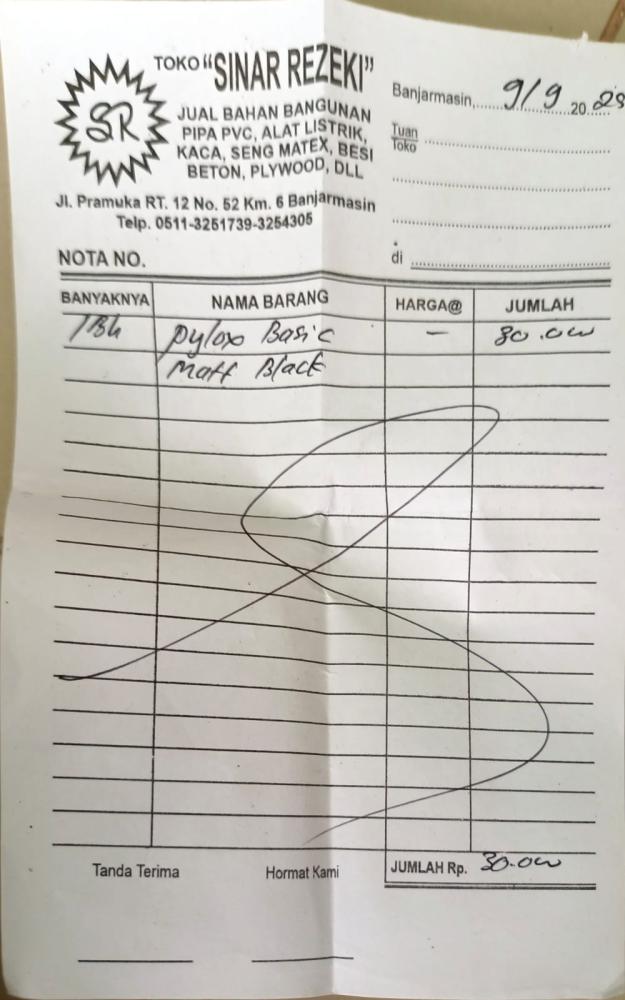 TOKO "SINAR REZEKI"
SR
JUAL BAHAN BANGUNAN
PIPA PVC, ALAT LISTRIK,
KACA, SENG MATEX, BESI
BETON, PLYWOOD, DLL
Jl. Pramuka RT. 12 No. 52 Km. 6 Banjarmasin
Telp. 0511-3251739-3254305
Banjarmasin, 9/9 20 25
Tuan
Toko
di
NOTA NO.
BANYAKNYA NAMA BARANG HARGA@ JUMLAH
1 Bh pylox Basic — 30.000
Matt Black
Tanda Terima Hormat Kami JUMLAH Rp. 30.000